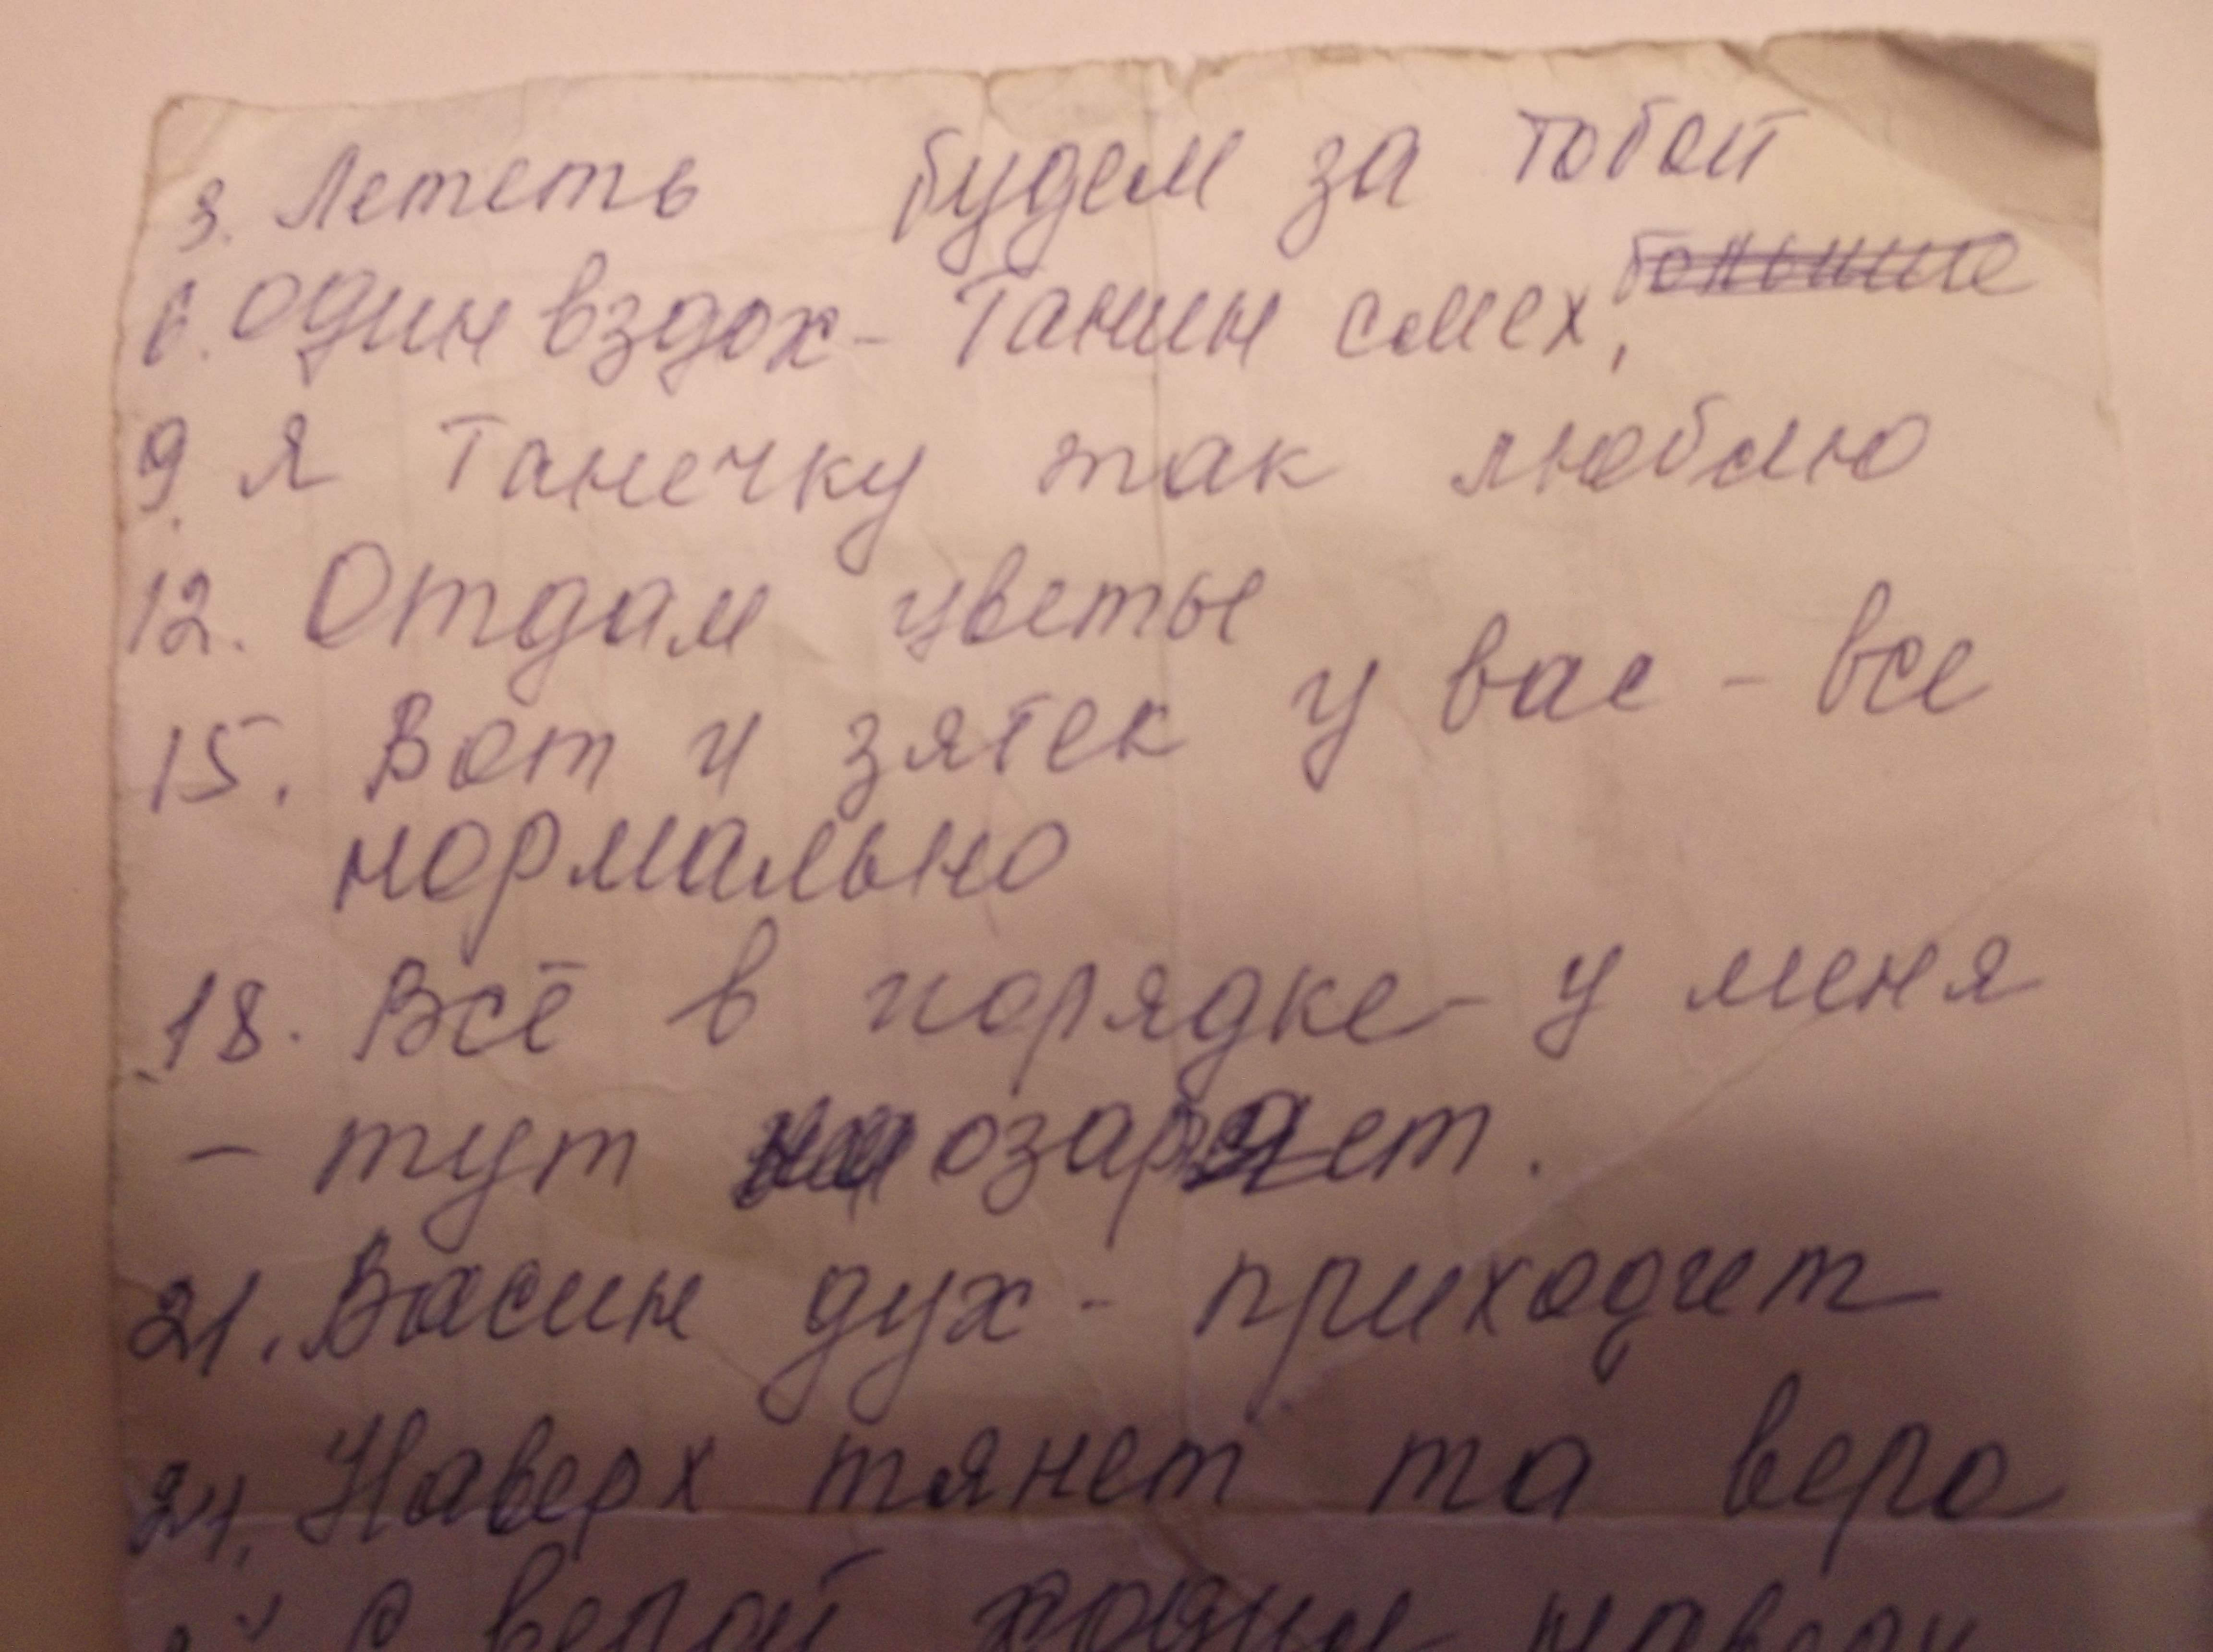 3. Лететь будем за тобой
6. Один вздох - Танин смех, больше
9. Я Танечку так люблю
12. Отдам цветы
15. Вот и зятек у вас - все
нормально
18. Всё в порядке - у меня
- тут озаряет.
21. Васин дух - приходит
24. Наверх тянет та вера
с верой ходим наверх